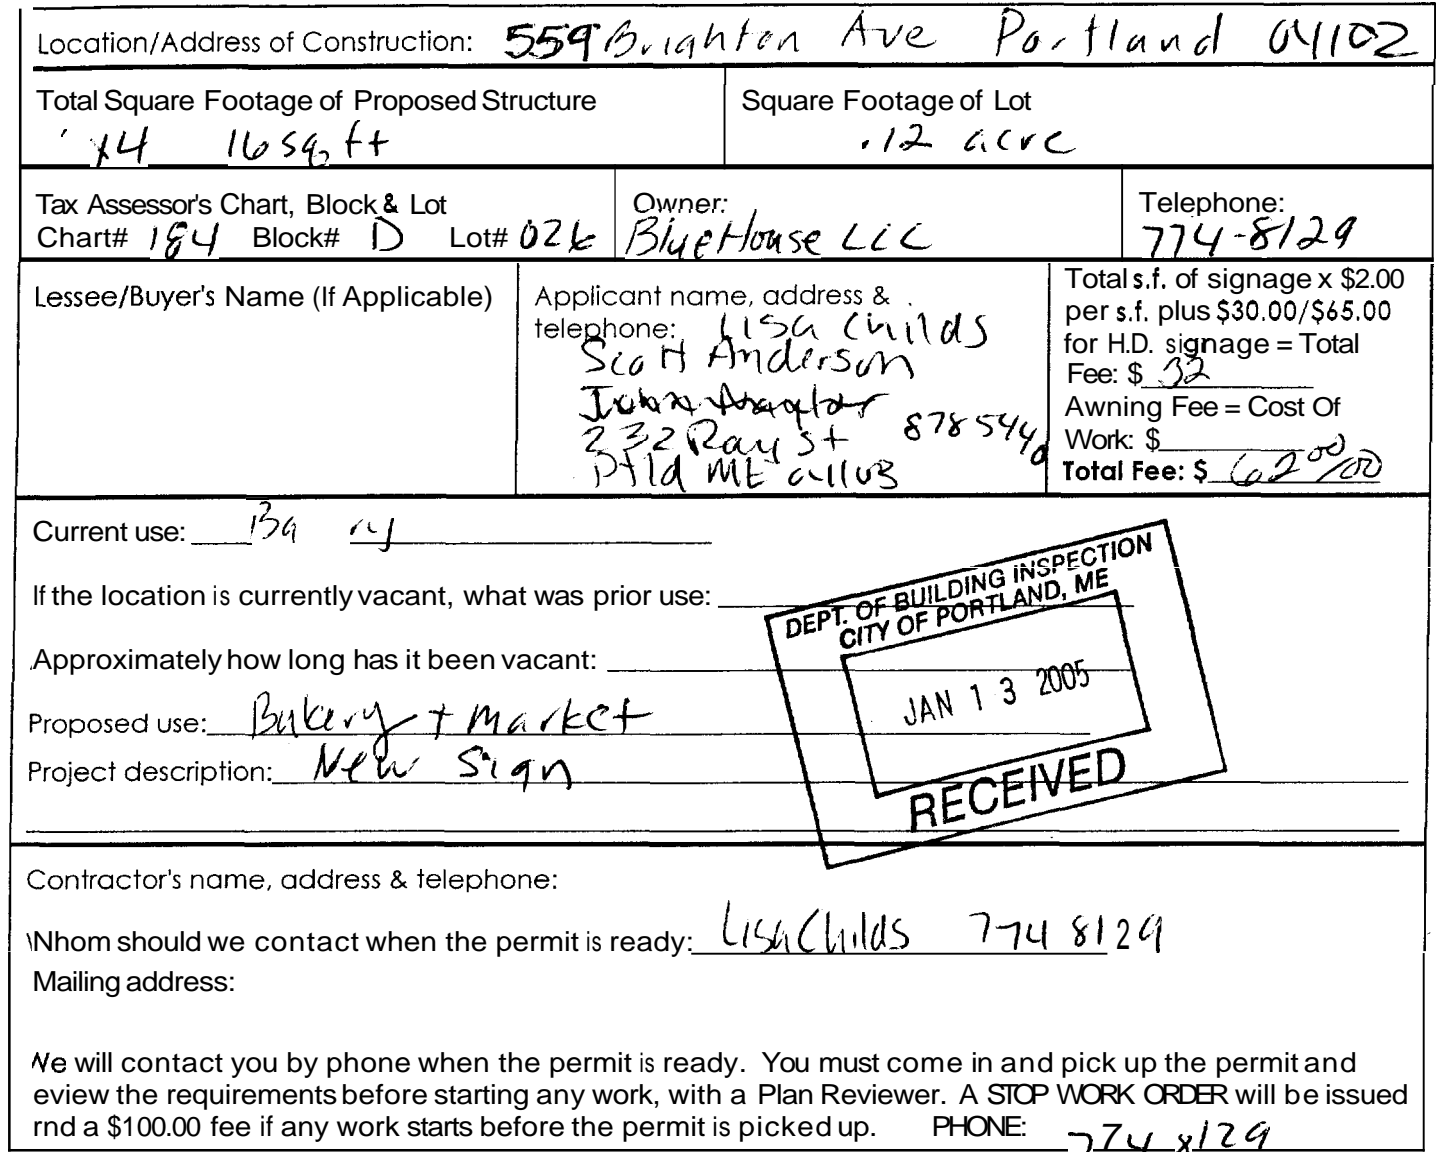 Location/Address of Construction: 559 Brighton Ave Portland 04102
Total Square Footage of Proposed Structure
x4 16 sq ft
Square Footage of Lot
.12 acre
Tax Assessor's Chart, Block & Lot
Chart# 184 Block# D Lot# 026
Owner:
BlueHouse LLC
Telephone:
774-8129
Lessee/Buyer's Name (If Applicable)
Applicant name, address &
telephone: Lisa Childs
Scott Anderson
232 Ray St 878 5440
Ptld ME 04103
Total s.f. of signage x $2.00
per s.f. plus $30.00/$65.00
for H.D. signage = Total
Fee: $ 32
Awning Fee = Cost Of
Work: $
Total Fee: $ 62 00/00
Current use: Ba ry
If the location is currently vacant, what was prior use:
Approximately how long has it been vacant:
Proposed use: Bakery + market
Project description: New Sign
DEPT. OF BUILDING INSPECTION
CITY OF PORTLAND, ME
JAN 13 2005
RECEIVED
Contractor's name, address & telephone:
Whom should we contact when the permit is ready: Lisa Childs 774 8129
Mailing address:
We will contact you by phone when the permit is ready. You must come in and pick up the permit and
eview the requirements before starting any work, with a Plan Reviewer. A STOP WORK ORDER will be issued
rnd a $100.00 fee if any work starts before the permit is picked up. PHONE: 774 8129